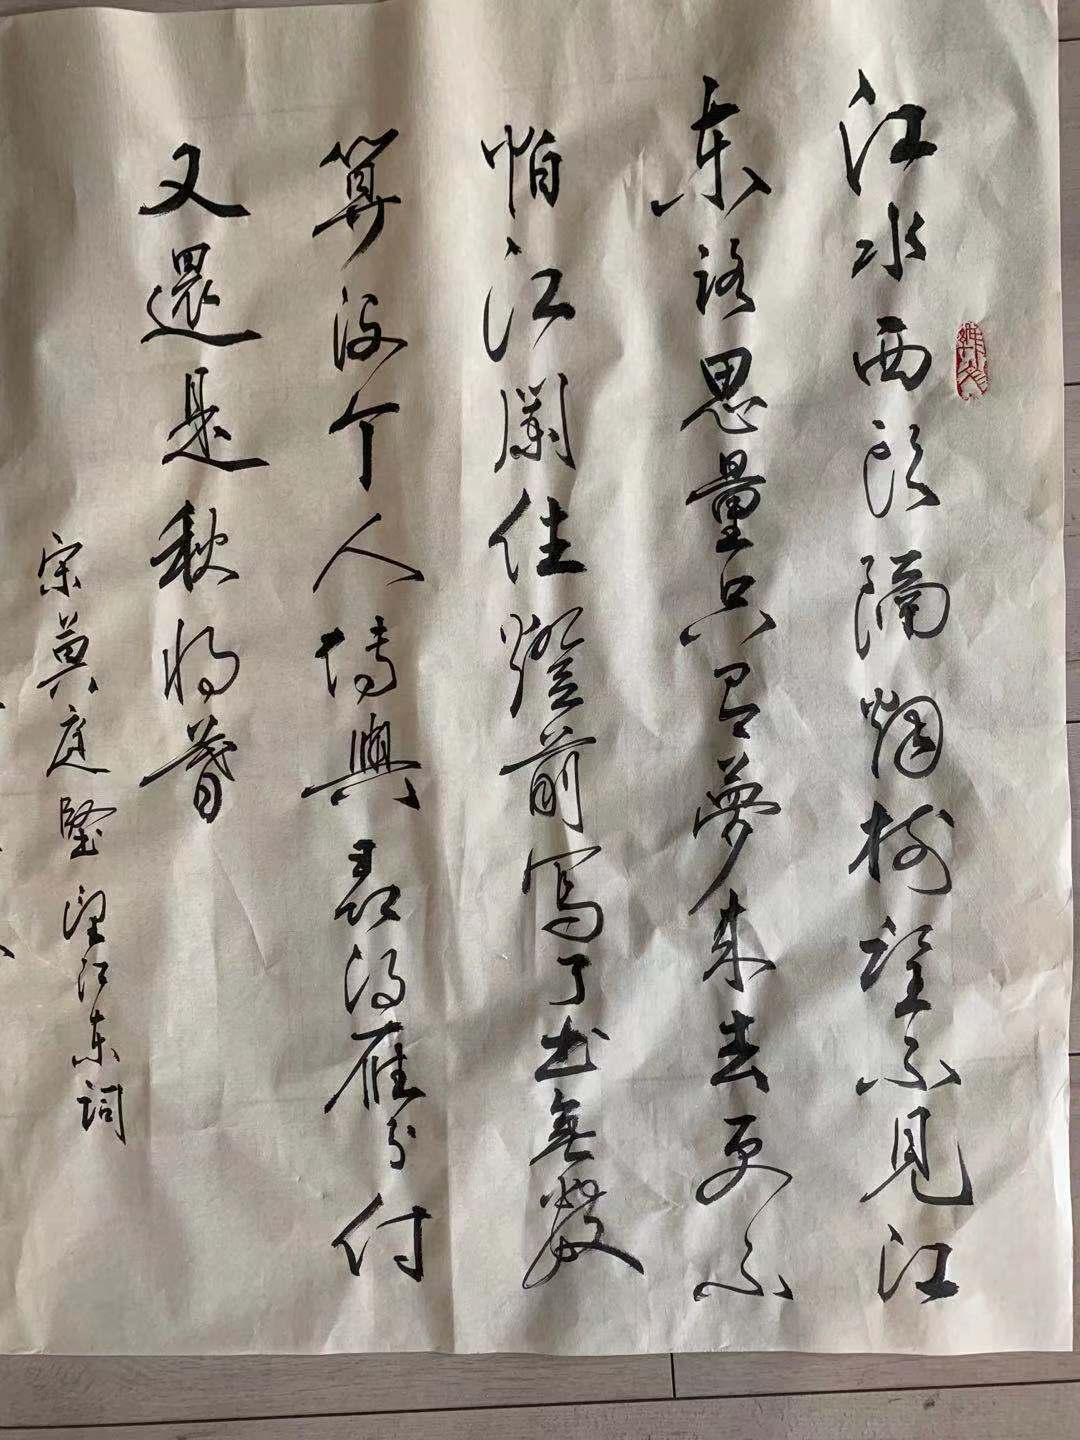 江水西頭隔烟樹望不見江
東路思量只有夢來去更不
怕江闌住燈前寫了書無數
算没个人傳與尋得雁分付
又還是秋將暮
宋黄庭堅望江東詞